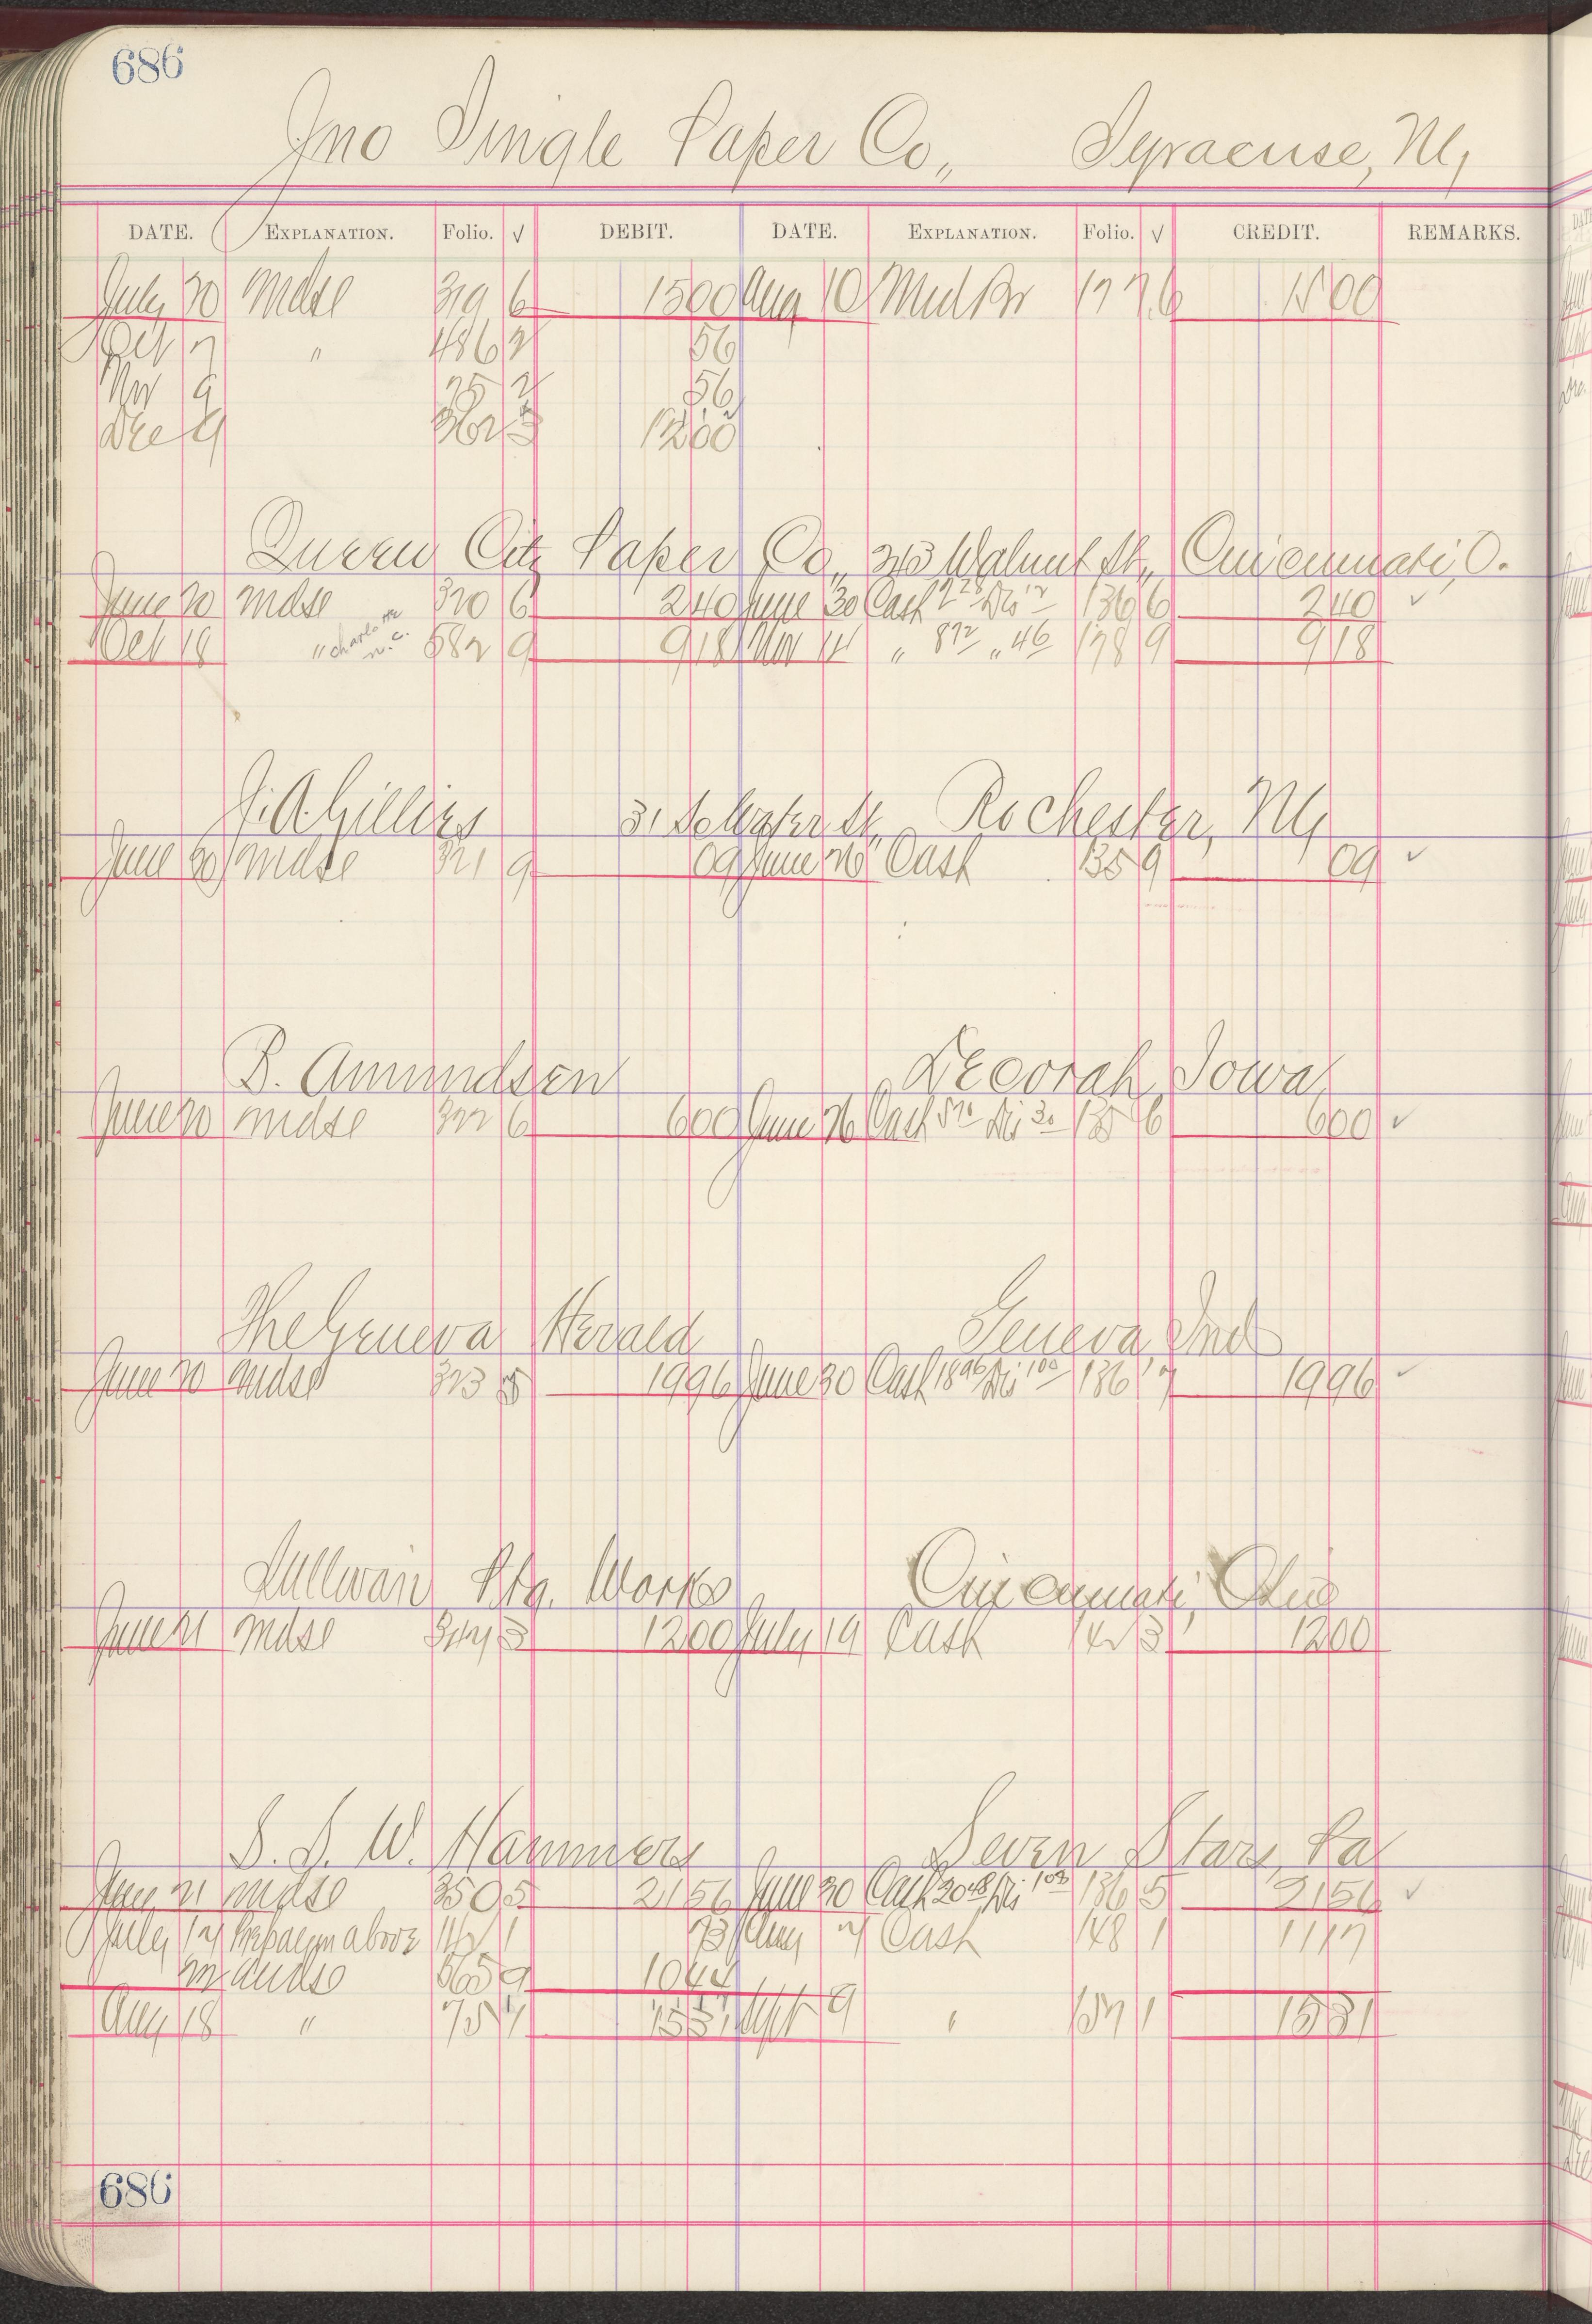 686
Jno Single Paper Co., Syracuse, NY
DATE. EXPLANATION. Folio. √ DEBIT. DATE. EXPLANATION. Folio. √ CREDIT. REMARKS.
July 20 Mdse 319 6 1500 Aug 10 1776 1500
Oct 7 " 486 2 56
Nov 9 25 2 56
Dec 9 362 3 1200
Queen City Paper Co., Walnut St., Cincinnati, O.
June 20 Mdse 320 6 240 June 30 Cash 2 28 Dis 12 136 6 240 ✓
Oct 18 " Charlotte N.C. 582 9 918 Nov 14 " 872 " 46 178 9 918
J. A. Gillies Rochester, NY
June 20 Mdse 321 9 09 June 26 Cash 135 9 09 ✓
B. Amundsen Decorah, Iowa
June 20 Mdse 322 6 600 June 26 Cash 570 Dis 30 135 6 600 ✓
The Geneva Herald Geneva, Ind
June 20 Mdse 323 1996 June 30 Cash 1896 Dis 100 136 7 1996 ✓
Sullivan Ptg. Works Cincinnati, Ohio
June 21 Mdse 3 1200 July 19 Cash 142 3 1200
S. S. W. Hammers Seven Stars, Pa
June 21 Mdse 350 5 2156 June 30 Cash 2048 Dis 108 136 5 2156 ✓
July 12 Prepay on above 1 73 Aug 2 Cash 148 1 1117
Mdse 565 9 1044
Aug 18 " 75 1531 Sept 9 " 157 1 1531
686